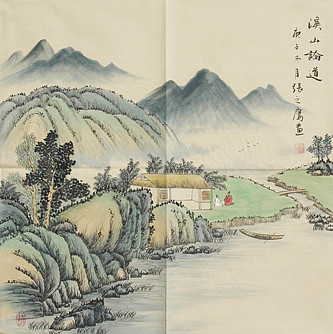 溪山論道
庚子冬月張之畫